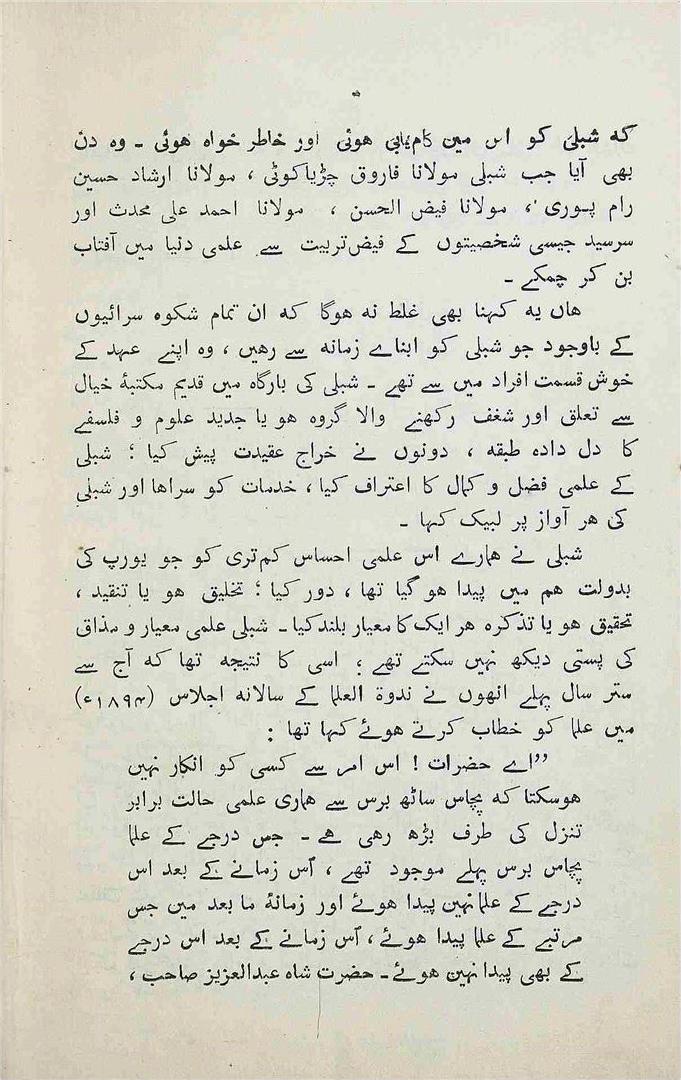 ۵
کہ شبلی کو اس میں کامیابی ہوئی اور خاطر خواہ ہوئی ۔ وہ دن
بھی آیا جب شبلی مولانا فاروق چڑیاکوٹی ، مولانا ارشاد حسین
رام پوری ، مولانا فیض الحسن ، مولانا احمد علی محدث اور
سرسید جیسی شخصیتوں کے فیض تربیت سے علمی دنیا میں آفتاب
بن کر چمکے ۔
ھاں یہ کہنا بھی غلط نہ ھوگا کہ ان تمام شکوہ سرائیوں
کے باوجود جو شبلی کو ابناے زمانہ سے رھیں ، وہ اپنے عہد کے
خوش قسمت افراد میں سے تھے ۔ شبلی کی بارگاہ میں قدیم مکتبۂ خیال
سے تعلق اور شغف رکھنے والا گروہ ھو یا جدید علوم و فلسفے
کا دل دادہ طبقہ ، دونوں نے خراج عقیدت پیش کیا ؛ شبلی
کے علمی فضل و کمال کا اعتراف کیا ، خدمات کو سراھا اور شبلی
کی ھر آواز پر لبیک کہا ۔
شبلی نے ھمارے اس علمی احساس کم تری کو جو یورپ کی
بدولت ھم میں پیدا ھو گیا تھا ، دور کیا ؛ تخلیق ھو یا تنقید ،
تحقیق ھو یا تذکرہ ھر ایک کا معیار بلند کیا ۔ شبلی علمی معیار و مذاق
کی پستی دیکھ نہیں سکتے تھے ؛ اسی کا نتیجہ تھا کہ آج سے
ستر سال پہلے انھوں نے ندوۃ العلما کے سالانہ اجلاس (۱۸۹۴ء)
میں علما کو خطاب کرتے ھوئے کہا تھا :
”اے حضرات ! اس امر سے کسی کو انکار نہیں
ھوسکتا کہ پچاس ساٹھ برس سے ھماری علمی حالت برابر
تنزل کی طرف بڑھ رھی ھے ۔ جس درجے کے علما
پچاس برس پہلے موجود تھے ، اُس زمانے کے بعد اس
درجے کے علما نہیں پیدا ھوئے اور زمانۂ ما بعد میں جس
مرتبے کے علما پیدا ھوئے ، اُس زمانے کے بعد اس درجے
کے بھی پیدا نہیں ھوئے ۔ حضرت شاہ عبدالعزیز صاحب ،